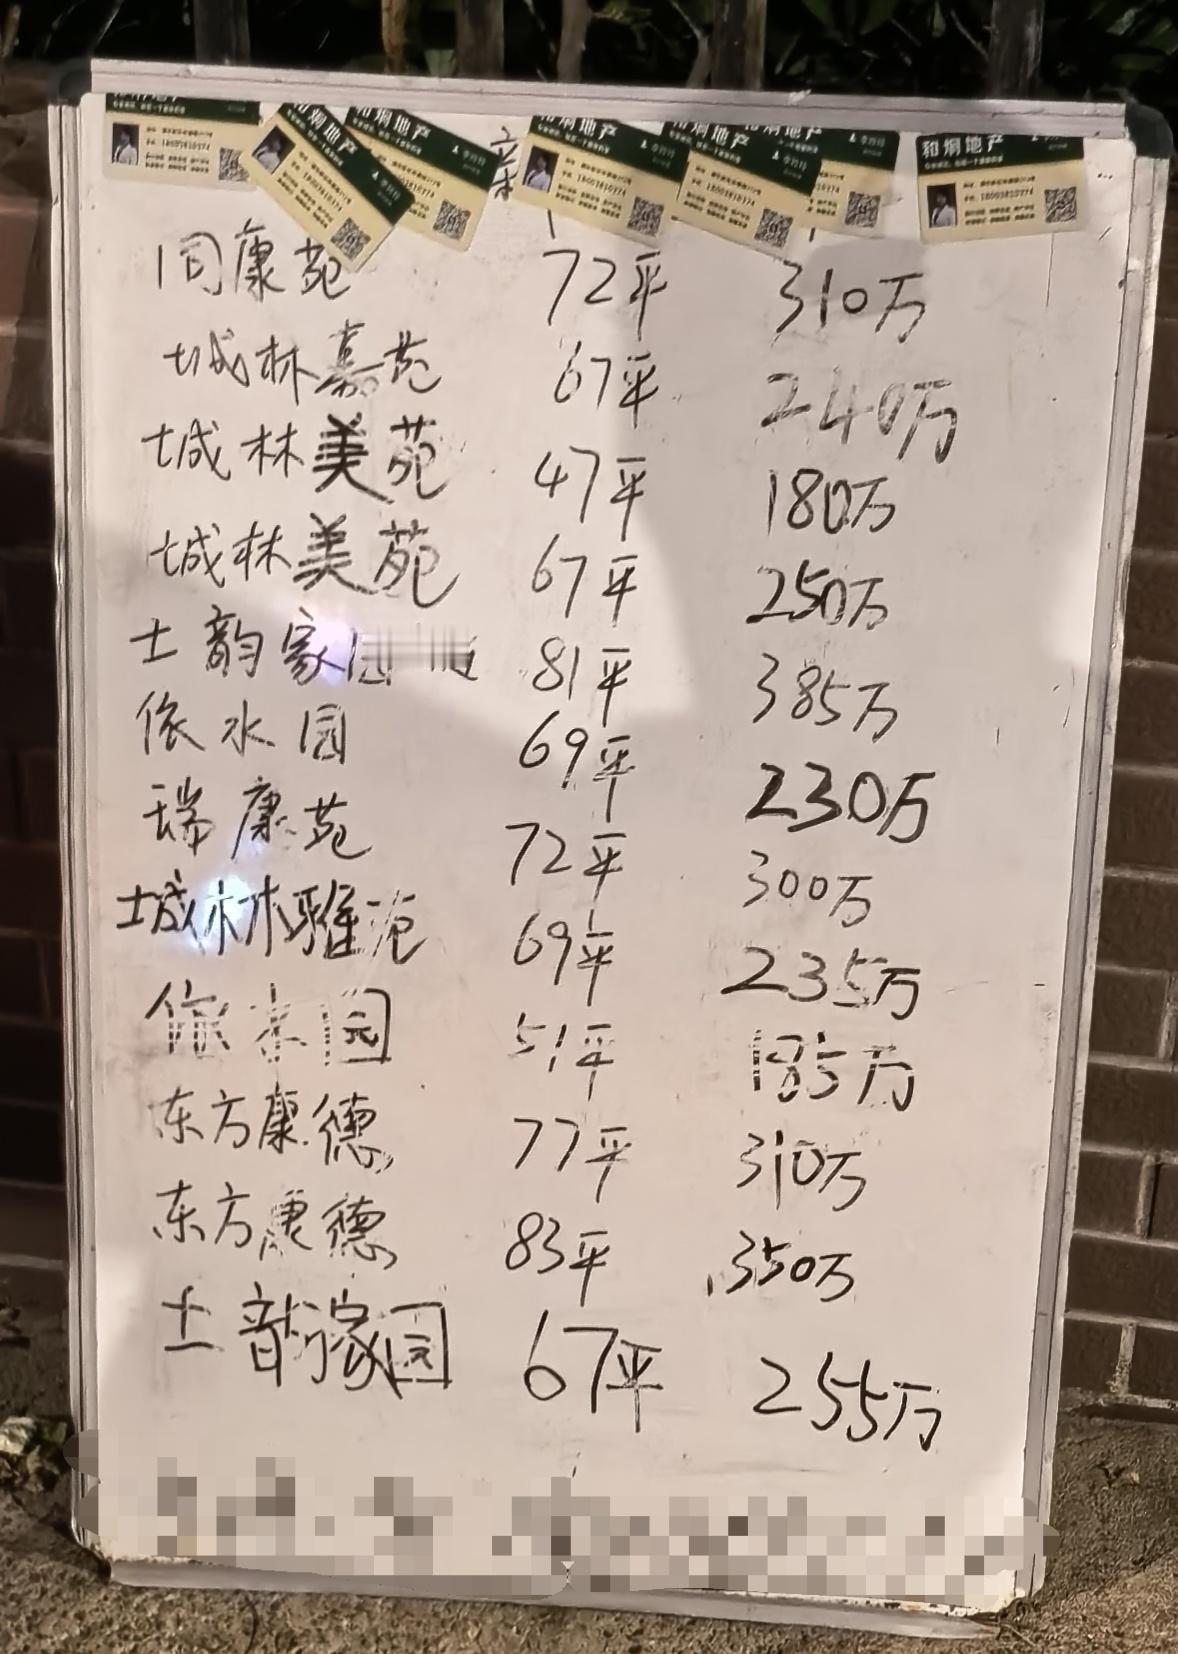 和炯地产
和炯地产
和炯地产
18003810374
18003810374
18003810374
同康苑 72平 310万
城林嘉苑 67平 240万
城林美苑 47平 180万
城林美苑 67平 250万
士韵家园 81平 385万
依水园 69平 230万
瑞康苑 72平 300万
城林雅苑 69平 235万
依水园 51平 185万
东方康德 77平 310万
东方康德 83平 350万
士韵家园 67平 255万